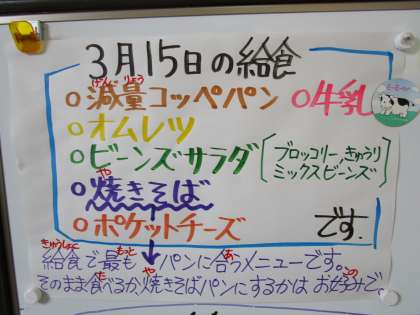 3月15日の給食
○減量コッペパン ○牛乳
げんりょう
○オムレツ
○ビーンズサラダ[ブロッコリー,きゅうり
ミックスビーンズ]
や
○焼きそば
○ポケットチーズ です.
きゅうしょく もっと あ
給食で最もパンに合うメニューです。
た や この
そのまま食べるか,焼きそばパンにするかはお好みで。